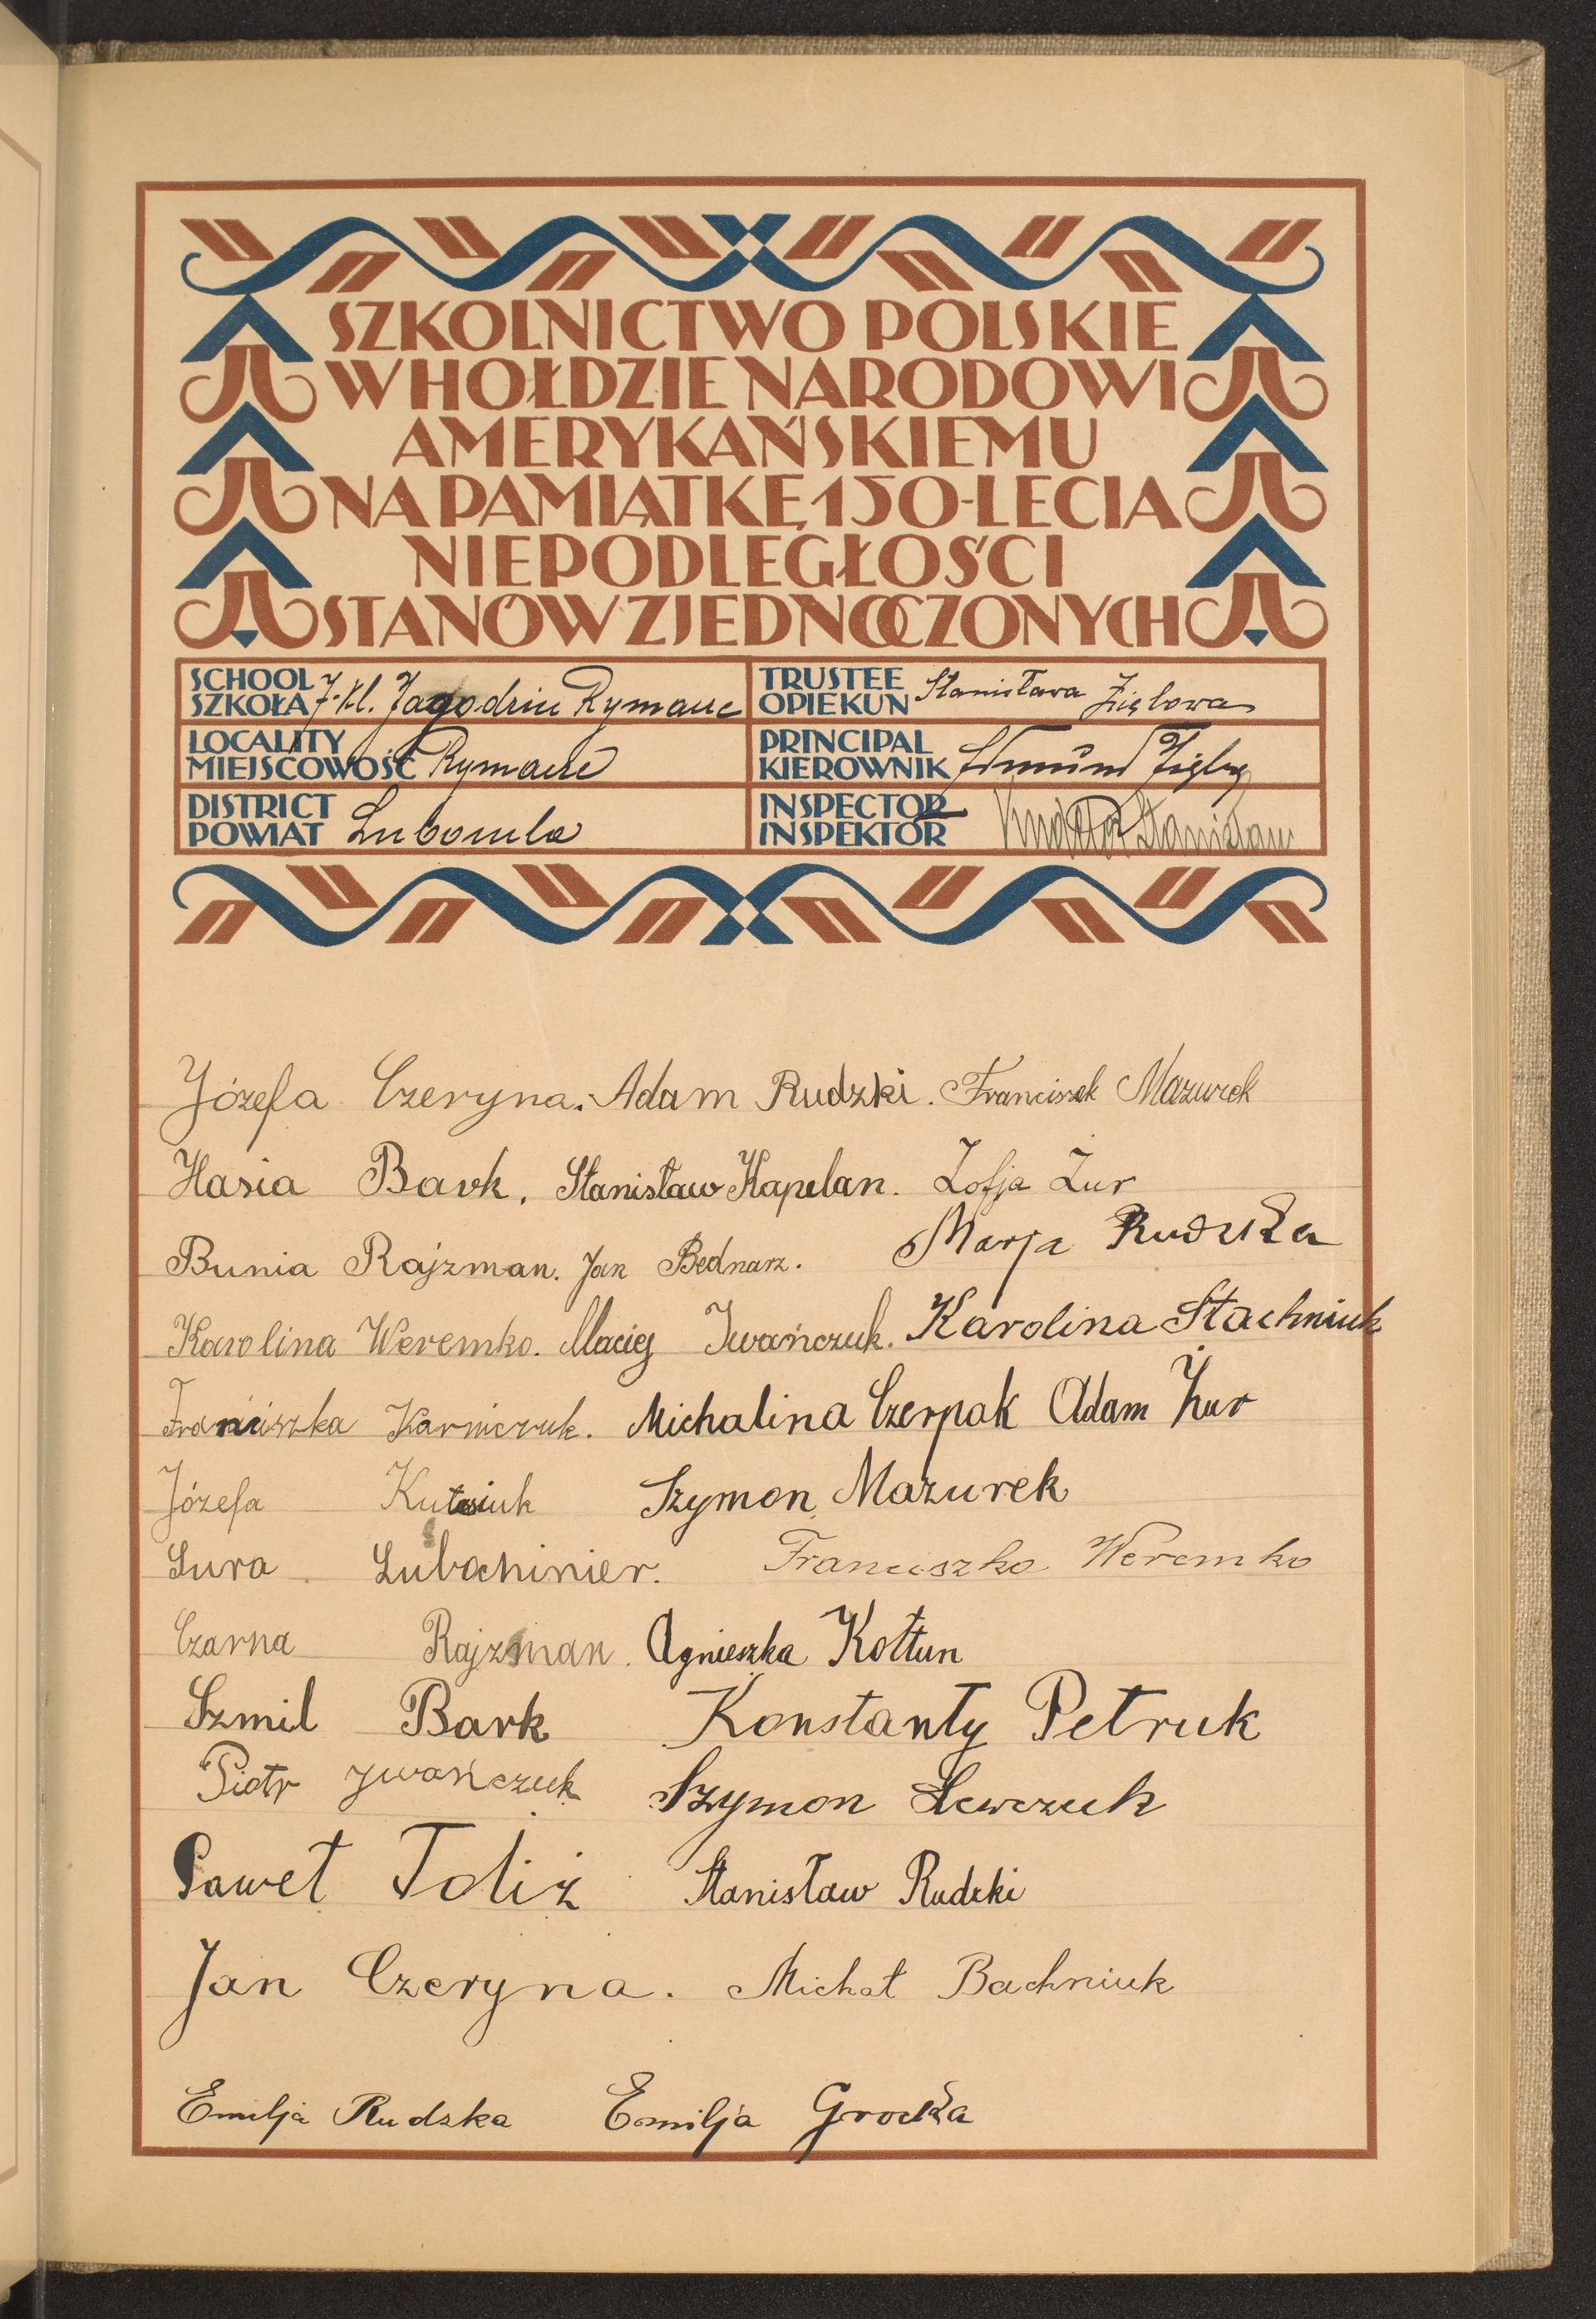 SZKOLNICTWO POLSKIE
W HOŁDZIE NARODOWI
AMERYKAŃSKIEMU
NA PAMIĄTKĘ 150-LECIA
NIEPODLEGŁOŚCI
STANÓW ZJEDNOCZONYCH
SCHOOL
SZKOŁA 7. kl. Jagodzin Rymacze
TRUSTEE
OPIEKUN Stanisława
LOCALITY
MIEJSCOWOŚĆ Rymacze
PRINCIPAL
KIEROWNIK Edmund
DISTRICT
POWIAT Lubomla
INSPECTOR
INSPEKTOR Stanisław
Józefa Czeryna. Adam Rudzki. Franciszek Mazurek
Hasia Bark. Stanisław Kapelan. Zofja Żur
Bunia Rajzman. Jan Bednarz. Marja Rudzka
Karolina Weremko. Maciej Iwańczuk. Karolina Stachniuk
Franciszka Karniczuk. Michalina Czerpak Adam Żur
Józefa Szymon Mazurek
Sura Lubochinier. Franciszka Weremko
Czarna Rajzman. Agnieszka Kołtun
Szmil Bark Konstanty Petruk
Piotr Iwańczuk Szymon Lewczuk
Paweł Toliż Stanisław Rudzki
Jan Czeryna. Michał Bachniuk
Emilja Rudzka Emilja Grodzka